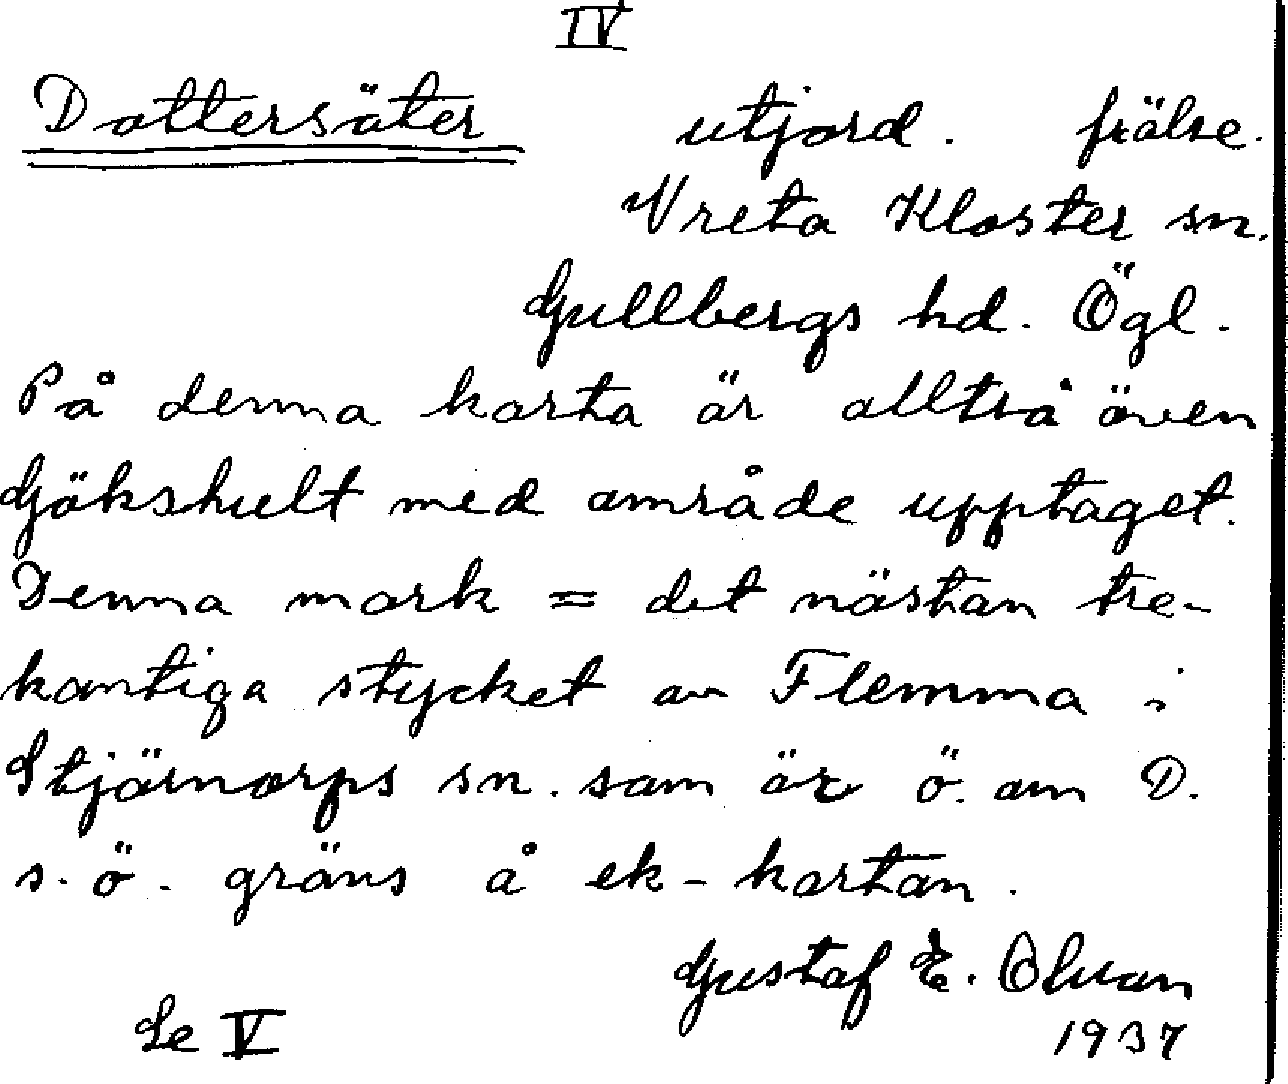 IV
Dottersäter utjord. frälse.
Vreta Kloster sn.
Gullbergs hd. Ögl.
På denna karta är alltså även
Gökshult med område upptaget.
Denna mark = det nästan tre-
kantiga stycket av Flemma i
Stjärnorps sn. som är ö. om D.
s.ö. gräns å ek-kartan.
Gustaf E. Olsson
Se V 1937